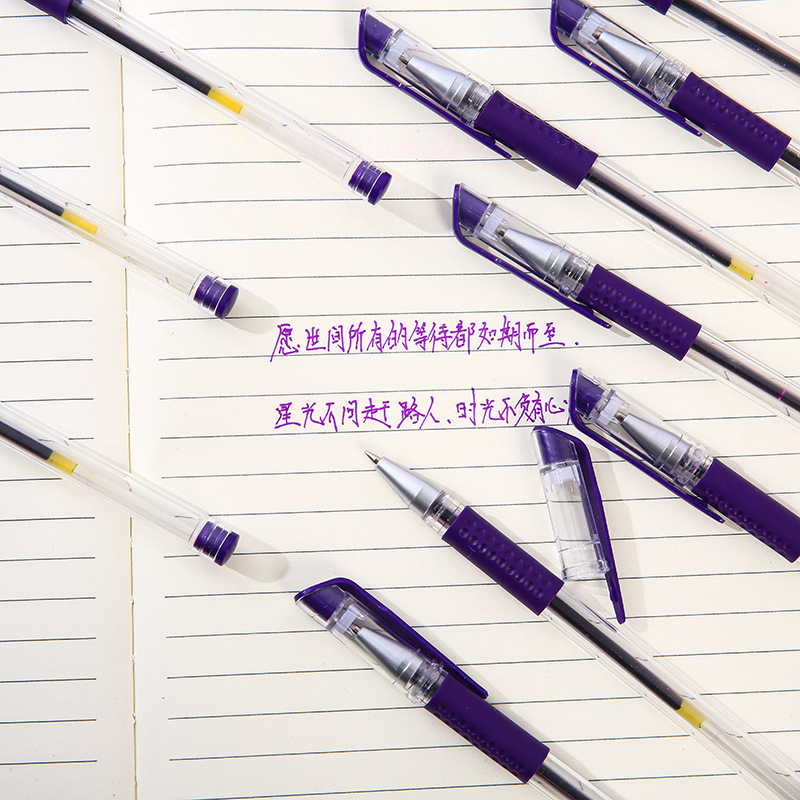 愿世间所有的等待都如期而至.
星光不问赶路人、时光不负有心